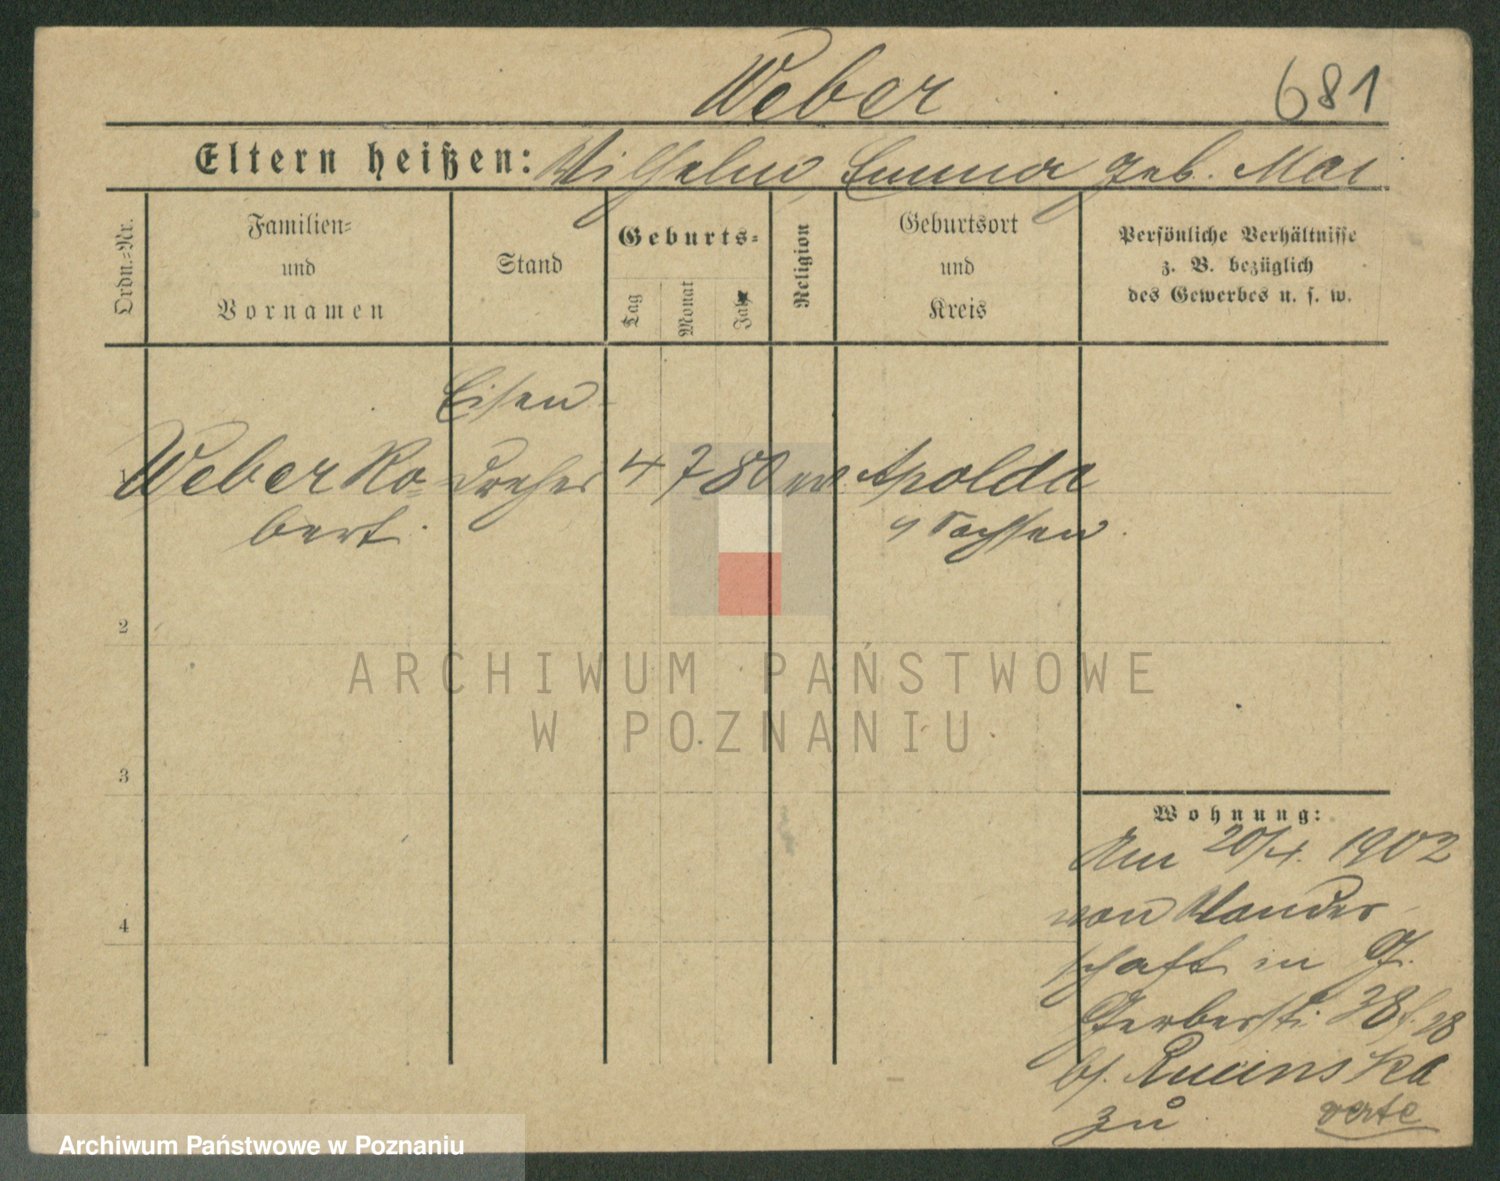 Weber
681
Eltern heißen: Wilhelm, Emma geb. Mai
Ordn.=Nr.
Familien=
und
Vornamen
Stand
Geburts=
Tag
Monat
Jahr
Religion
Geburtsort
und
Kreis
Persönliche Verhältnisse
z. B. bezüglich
des Gewerbes u. s. w.
Eisen
1 Weber Ro= dreher 4 7 80 ev. Apolda
bert. Sachsen
2
ARCHIWUM PAŃSTWOWE
W POZNANIU
3
Wohnung:
Am 20/4. 1902
von Wander
4
schaft in J.
Gerberstr. 38
b/. Rucinska
zu
verte
Archiwum Państwowe w Poznaniu